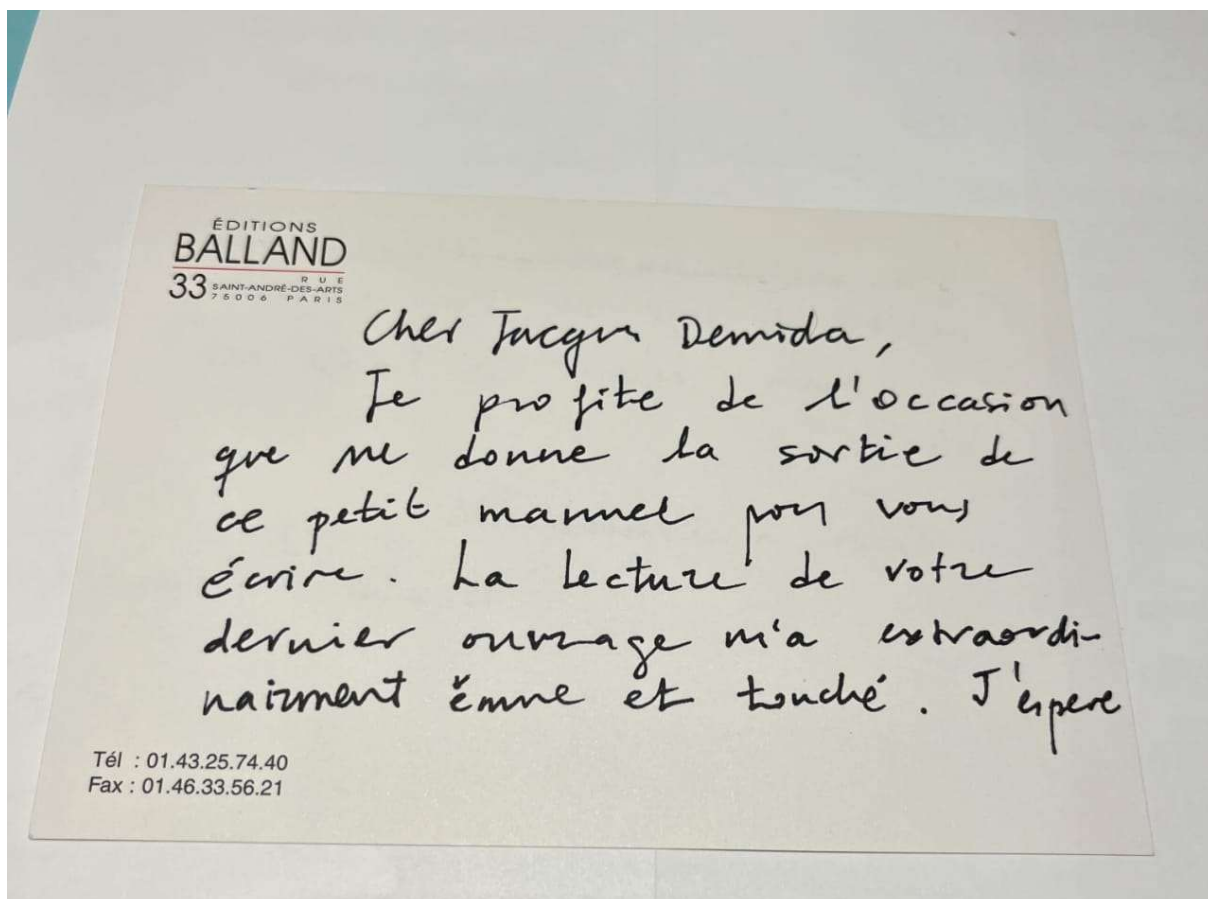 ÉDITIONS
BALLAND
33 RUE
SAINT-ANDRÉ-DES-ARTS
75006 PARIS
Cher Jacques Demida,
Je profite de l'occasion
que me donne la sortie de
ce petit manuel pour vous
écrire. La lecture de votre
dernier ouvrage m'a extraordi-
nairment émue et touché. J'espere
Tél : 01.43.25.74.40
Fax : 01.46.33.56.21